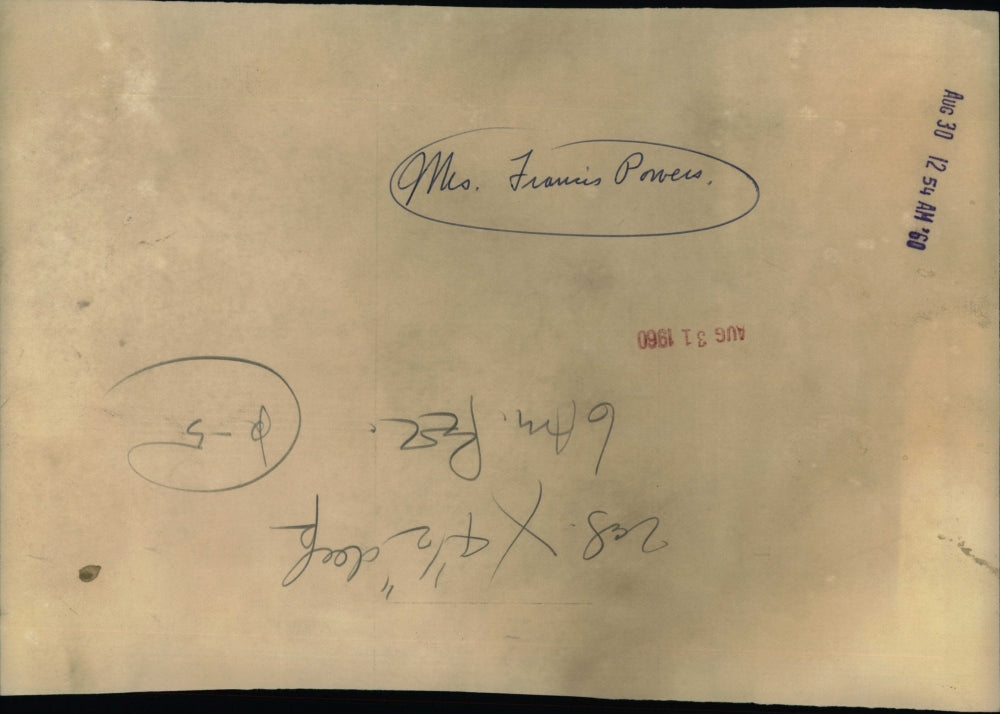 Mrs. Francis Powers.
AUG 30 12 54 AM '60
AUG 31 1960
2cs. X 4 1/2" deep
6 Am.
P-5